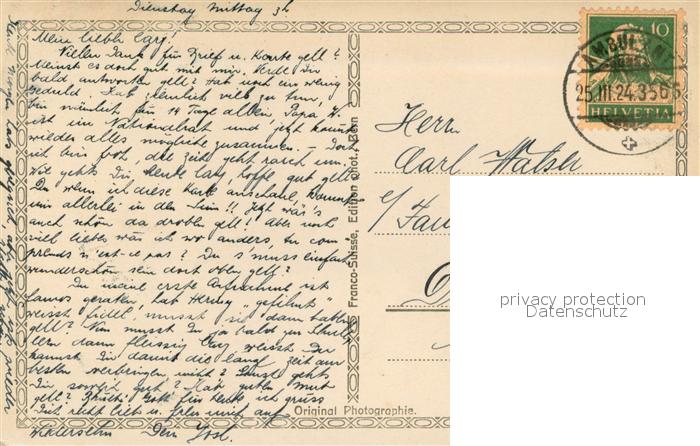 Dienstag Mittag 3h
Mein liebster Carj!
Vielen Dank für Brief u. Karte gell?
Meinst es doch gut mit mir. Werde Dir
bald antworten gell? Hab noch ein wenig
Geduld. Hab nämlich viel zu tun,
bin nämlich für 14 Tage allein, Papa W.
ist im Nationalrat und jetzt kommt
wieder alles mögliche zusammen. - Doch
ich bin froh, die Zeit geht rasch um.
Wie gehts Dir heute Carj, hoffe gut gell?
Du wenn ich diese Karte anschaue kommt
mir allerlei in den Sinn!! Jetzt wär's
auch schön da droben gell! Aber noch
viel lieber wär ich wo anders, tu com
prends n'est-ce pas? Du s'muss einfach
wunderschön sein dort oben gell?
Du meine erste Aufnahme ist
famos geraten, hat
weisst fidel, musst sie dann haben
gell? Nun musst Du ja bald zu
dann fleissig Carj weisst Du
kannst Dir damit die lange Zeit am
besten verbringen nicht? Sonst gehts
Dir soweit gut? Hab guten Mut
gell? Bhüeti Gott für heute ich grüss
Dich recht lieb u. falls mich auf
Wiedersehn Dein
Franco-Suisse, Edition phot., Bern
Original Photographie.
Herrn
Carl Walser
c/
10
AMBULANT
25.III.24.
HELVETIA
privacy protection
Datenschutz